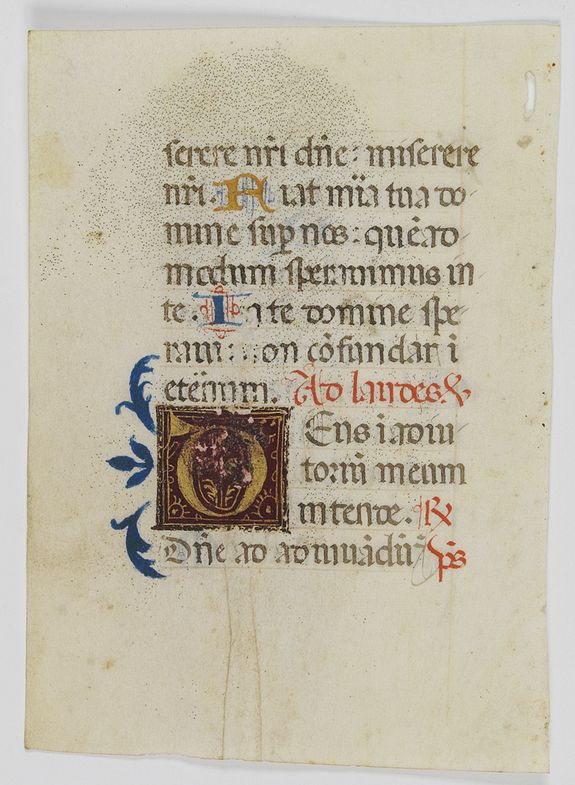 serere nr̄i dn̄e: miserere
nr̄i. Fiat mīa tua do
mine sup̱ nos: quēad
modum sperauimus in
te. In te domine spe
raui: non cōfundar ī
eternum. Ad laudes.
Deus i adiu
toriū meum
intende. ℟
Dn̄e ad adiuuādū p̄s